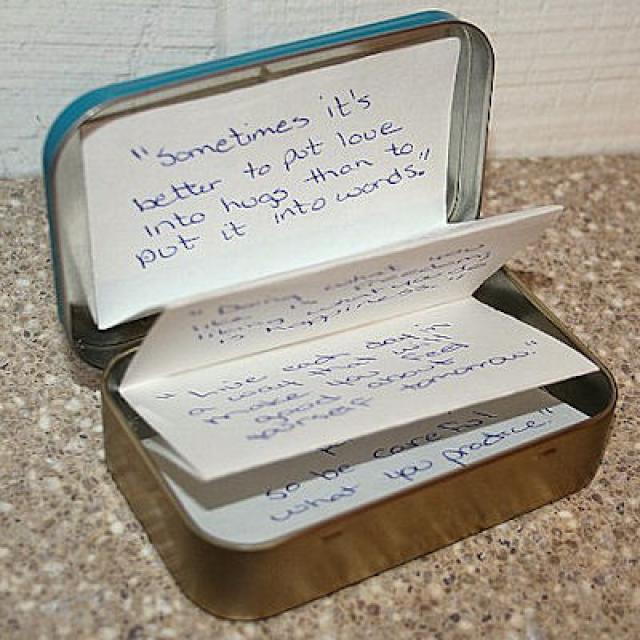 "Sometimes it's
better to put love
into hugs than to
put it into words."
"Doing what you
is Happiness
"Live each day in
a way that will
make you feel
good about
yourself tomorrow."
so be careful
what you practice."